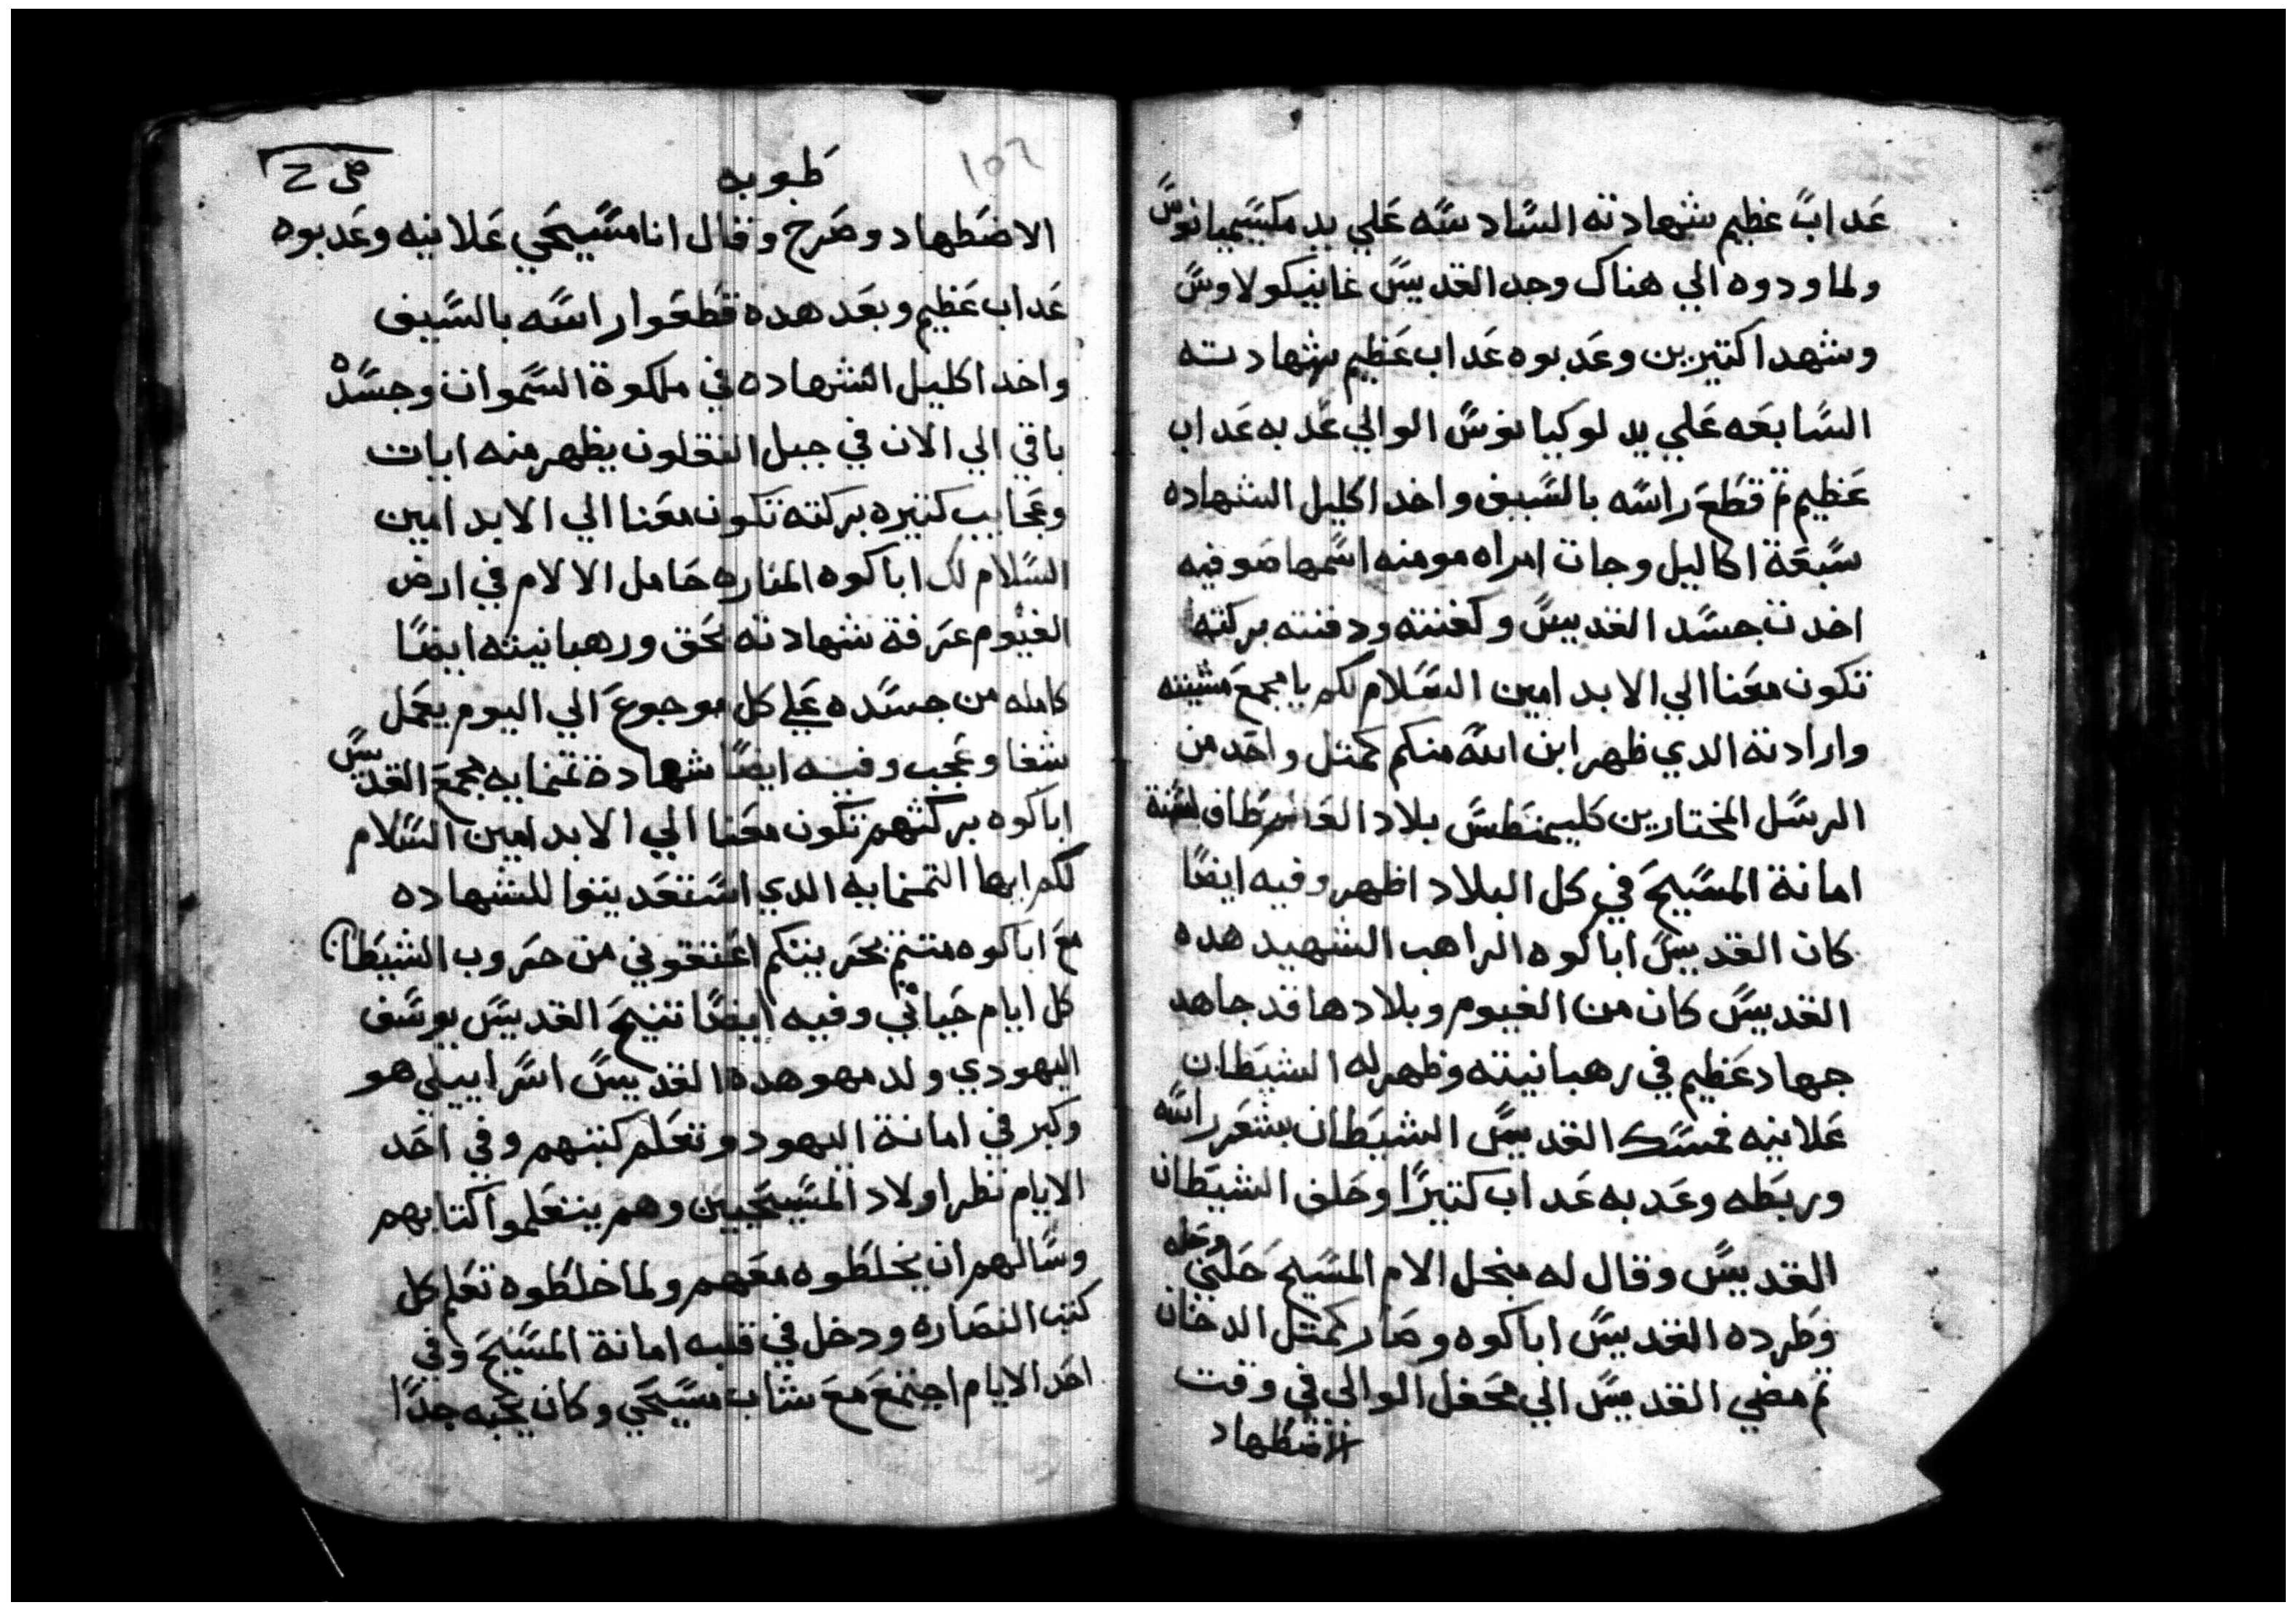 عداب عظيم شهادته السادسه علي يد مكسيميانوس
ولما ودوه الي هناك وجد القديس غانيكولاوس
وشهدا كتيرين وعدبوه عداب عظيم شهادته
السابعه علي يد لوكيانوس الوالي عدبه عداب
عظيم تم قطع راسه بالسيف واخد اكليل الشهاده
سبعة اكاليل وجات امراه مومنه اسمها صوفيه
اخدت جسد القديس وكفنته ودفنته بركته
تكون معنا الي الابد امين السلام لكم يا مجمع مشيته
وارادته الدي ظهر ابن الله منكم كمتل واحد من
الرسل المختارين كليمنطس بلاد
امانة المسيح في كل البلاد اظهر وفيه ايضا
كان القديس اباكوه الراهب الشهيد هده
القديس كان من الفيوم وبلادها قد جاهد
جهاد عظيم في رهبانيته وظهر له الشيطان
علانيه فمسك القديس الشيطان بشعر راسه
وربطه وعدبه عداب كتيرا وحلف الشيطان
القديس وقال له بنحل الام المسيح حلني وحله
وطرده القديس اباكوه وصار كمتل الدخان
تم مضي القديس الي محفل الوالي في وقت
الاضطهاد
١٥٦
طوبه
الاضطهاد وصرخ وقال انا مسيحي علانيه وعدبوه
عداب عظيم وبعد هده قطعوا راسه بالسيف
واخد اكليل الشهاده في ملكوة السموات وجسده
باقي الي الان في جبل النقلون يظهر منه ايات
وعجايب كتيره بركته تكون معنا الي الابد امين
السلام لك اباكوه المناره حامل الالام في ارض
الفيوم عرفة شهادته بحق ورهبانيته ايضا
كامله من جسده علي كل موجوع الي اليوم يعمل
شفا وعجب وفيه ايضا شهادة تمنمايه مجمع القديس
اباكوه بركتهم تكون معنا الي الابد امين السلام
لكم ايها التمنمايه الدي استعديتوا للشهاده
مع اباكوه متتم بحربيتكم اعتقوني من حروب الشيطان
كل ايام حياتي وفيه ايضا تنيح القديس يوسف
اليهودي ولد مهو هده القديس اسراييلي هو
وكبر في امانة اليهود وتعلم كتبهم وفي احد
الايام نظر اولاد المسيحيين وهم يتعلموا كتابهم
وسالهم ان يخلطوه معهم ولما خلطوه تعلم كل
كتب النصاره ودخل في قلبه امانة المسيح وفي
احد الايام اجتمع مع شاب مسيحي وكان يحبه جدا